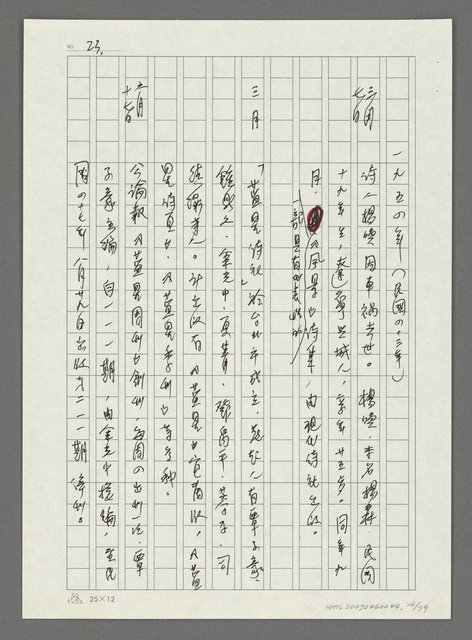 NO. 23.
一九五四年（民國四十三年）
三月七日
詩人楊喚因車禍去世。楊喚，本名楊森，民國
十九年生，遼寧興城人，享年廿五歲。同年九
月，《風景》詩集，由現代詩社出版。
三月
「藍星詩社」於台北市成立，發起人有覃子豪、
鍾鼎文、余光中、夏菁、鄧禹平、蓉子、司
徒衛等人。計出版有《藍星》宜蘭版，《藍
星詩頁》、《藍星季刊》等多種。
六月十七日
公論報《藍星周刊》創刊，每周四出刊一次，覃
子豪主編，自一一一期，由余光中接編，至民
國四十七年八月廿九日出版才二一一期停刊。
25×12
NMTL20070460044, 24/79